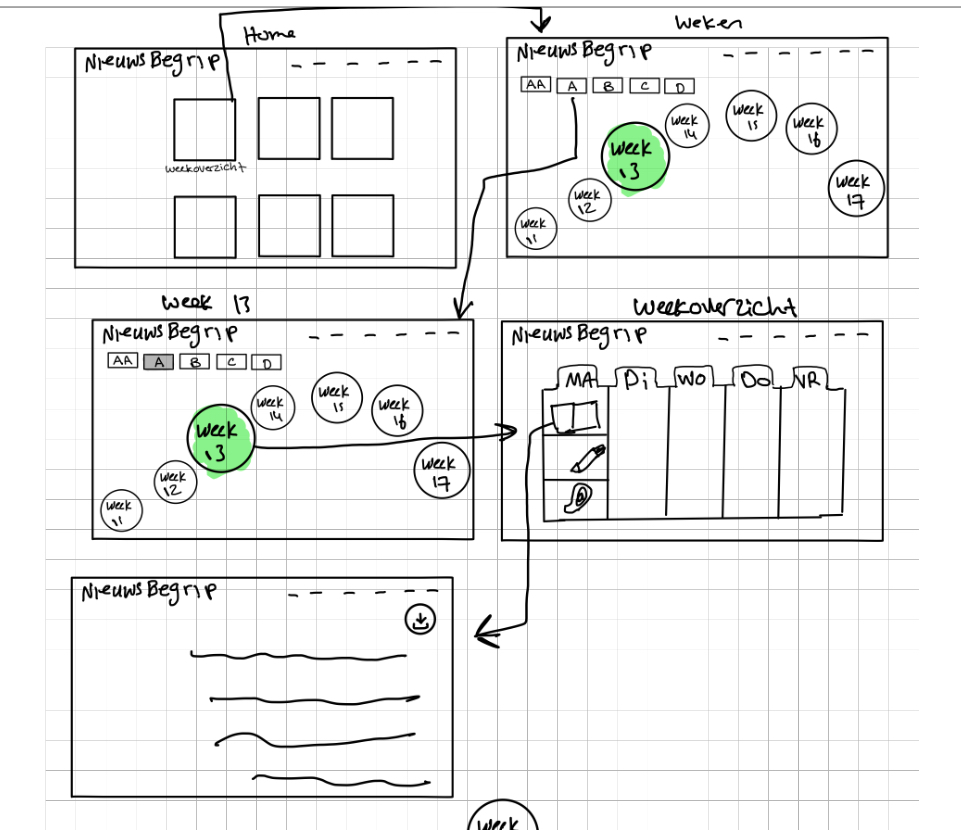 Home
Nieuws Begrip
weekoverzicht
Weken
Nieuws Begrip
AA A B C D
week 11
week 12
week 13
week 14
week 15
week 16
week 17
week 13
Nieuws Begrip
AA A B C D
week 11
week 12
week 13
week 14
week 15
week 16
week 17
weekoverzicht
Nieuws Begrip
MA Di Wo Do VR
Nieuws Begrip
week